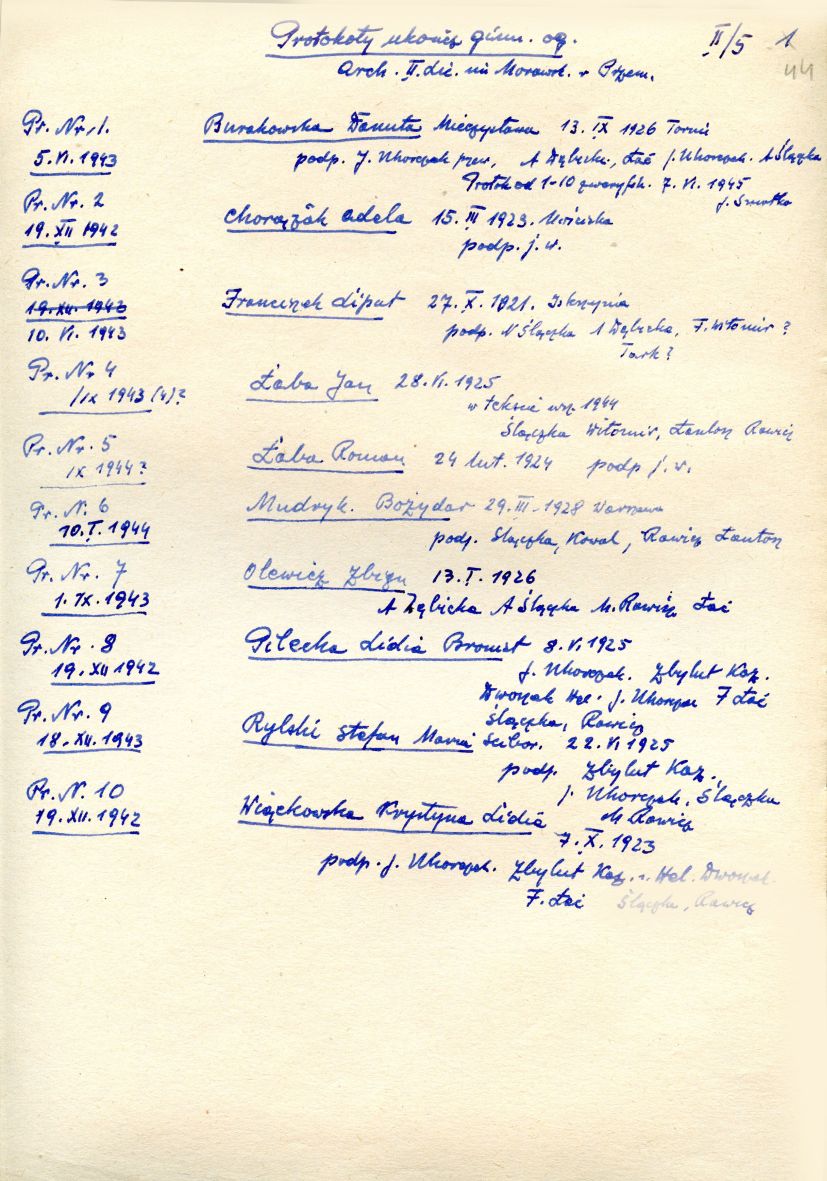 Protokoły ukończ. gimn. og. II/5 1
44
Arch. II. Lic. im Morawsk. w Przem.
Pr. Nr. 1. Burakowska Danuta Mieczysława 13. IX 1926 Toruń
5. VI. 1943 podp. J. Uhorczak A Dębicka, Łoć J. Uhorczak. A Ślączka
Protok od 1-10 zweryfik. 7. VI. 1945
Pr. Nr. 2 J. Świątko
19. XII 1942 Chorążak Adela 15. III 1923. Mościska
podp. j. w.
Pr. Nr. 3
19. XII. 1943 Franciszek Liput 27. X. 1921. Iskrzynia
10. VI. 1943 podp. Ślączka A Dębicka, F. Witomir ?
Tark ?
Pr. Nr 4 Łaba Jan 28. VI. 1925
/IX 1943 (4)? w tekście 1944
Ślączka Witomir, Rawicz
Pr. Nr. 5 Łaba Roman 24 lut. 1924 podp j. w.
IX 1944 ?
Pr. N. 6 Mudryk. Bożydar 29. III - 1928 Warszawa
10. I. 1944 podp. Ślączka, Kowal, Rawicz
Pr. Nr. 7 Olewicz Zbign 13. I. 1926
1. IX. 1943 A Dębicka A Ślączka M. Rawicz Łoć
Pr. Nr. 8 Pilecka Lidia Bronist 8. VI. 1925
19. XII 1942 J. Uhorczak. Zbylut Kaz.
Dworzak Hel. J. Uhorczak F Łoć
Pr. Nr. 9 Ślączka, Rawicz
18. XII. 1943 Rylski Stefan Maria Scibor. 22. VI 1925
podp. Zbylut Kaz.
Pr. N. 10 J. Uhorczak, Ślączka
19. XII. 1942 Wiąckowska Krystyna Lidia M Rawicz
7. X. 1923
podp. J. Uhorczak. Zbylut Kaz. i Hel. Dworzak
F. Łoć Ślączka, Rawicz